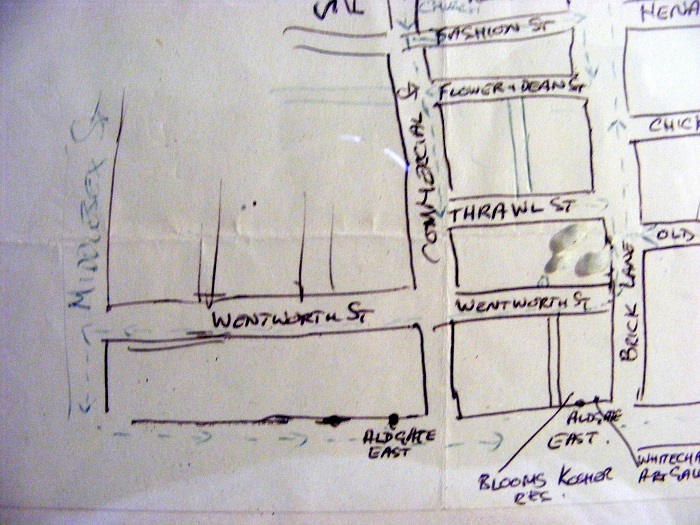 CHURCH
HENA
FASHION ST
FLOWER + DEAN ST
CHICK
COMMERCIAL ST
MIDDLESEX ST
THRAWL ST
OLD
WENTWORTH ST
WENTWORTH ST
BRICK LANE
ALDGATE
EAST
ALDGAE
EAST.
BLOOMS KOSHER
RES.
WHITECHA
ART GAL